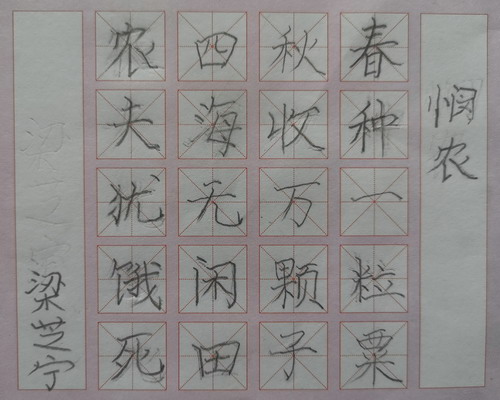 悯农
春种一粒粟
秋收万颗子
四海无闲田
农夫犹饿死
梁芝宁